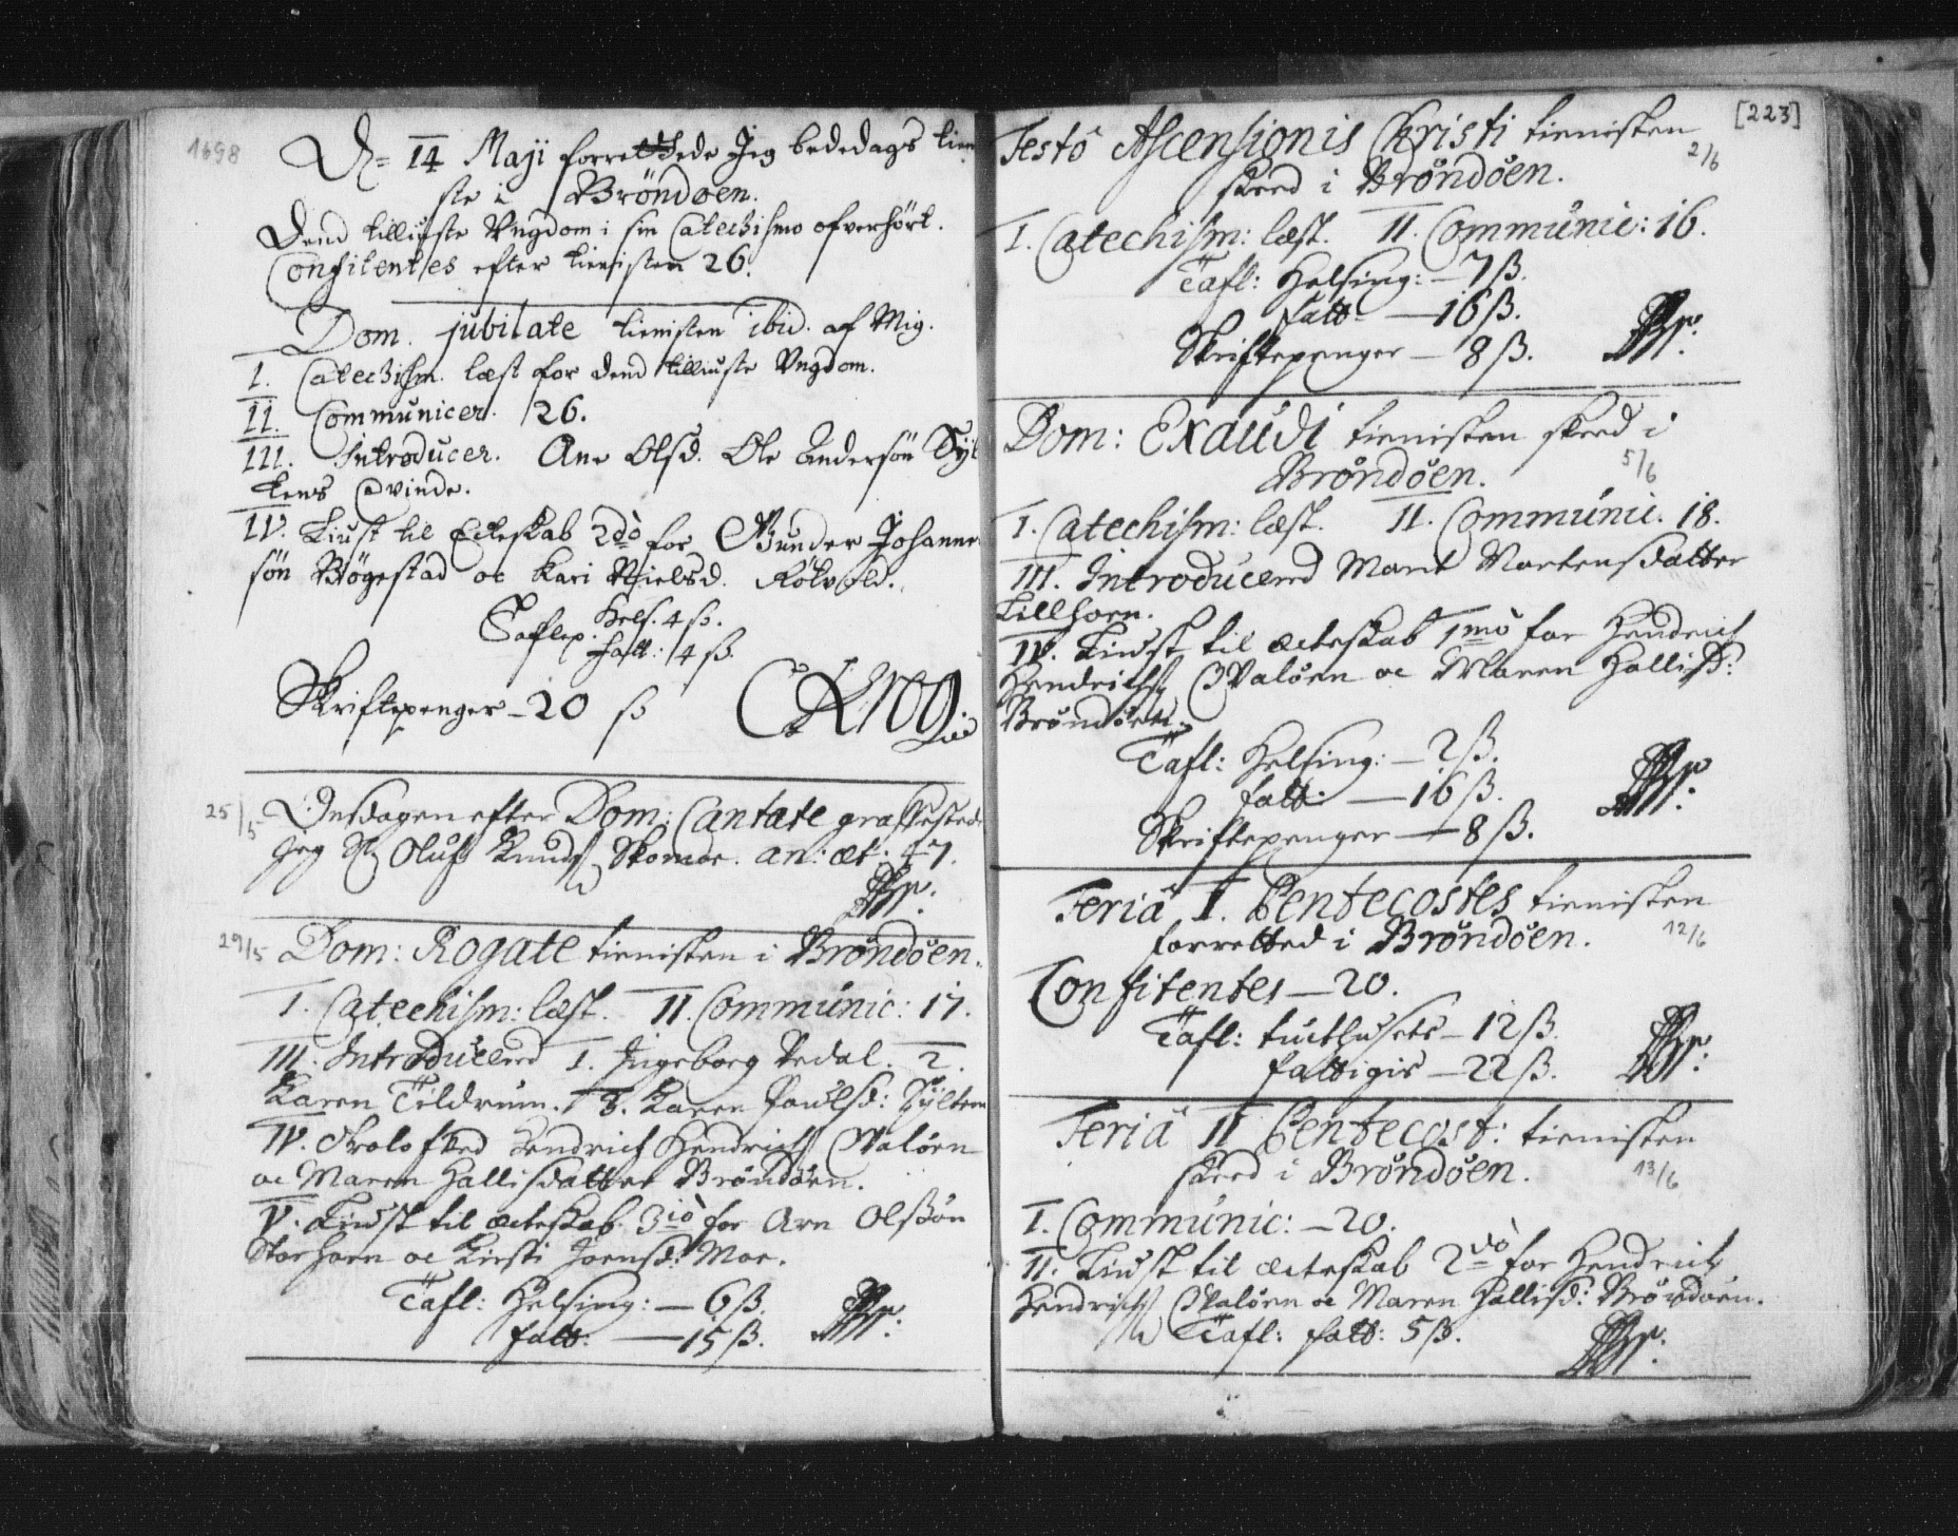 1698
D= 14 Maji forrettede Jeg bededags tien
ste i Brøndøen.
Dend tilliuste Ungdom i sin Catechismo ofverhørt.
Confitentes efter tienisten 26.
Dom. jubilate tienisten ibid. af Mig.
I. Catechism. læst for dend tilliuste Ungdom.
II. Communicer. 26.
III. Introducer. Ane Olsd. Ole Andersøn Syl
tens Qvinde.
IV. Liust til Ecteskab 2do for Gunder Johanne
søn Bøgestad oc Kari Nielsd. Rølvold.
Taflep. Hels. 4 ß.
fatt: 4 ß.
Skriftepenger - 20 ß CKrog:
25/5 Onsdagen efter Dom: Cantate graffestede
jeg Oluf Knuds Skomoe. an: æt: 47.
29/5 Dom: Rogate tienisten i Brøndøen.
I. Catechism: læst. II. Communic: 17.
III. Introducered 1. Ingeborg Vedal. 2.
Karen Tildrum. 3. Karen Poulsd: Sylten
IV. Trolofved Hendrich Hendrichs Hvaløen
oc Maren Hallisdatter Brøndøen.
V. Liust til ecteskab 3io for Arn Olssøn
Storhorn oc Kirsti Joensd: Moe.
Tafl: Helsing: — 6 ß.
fatt: — 15 ß.
[223]
Festo Ascensionis Christi tienisten
2/6
skeed i Brøndøen.
I. Catechism: læst. II. Communic: 16.
Tafl: Helsing: — 7 ß.
fatt — 16 ß.
Skriftepenger — 8 ß.
Dom: Exaudi tienisten skeed i
5/6
Brøndøen.
I. Catechism: læst. II. Communic. 18.
III. Introducered Marit Mortensdatter
Lillhorn.
IV. Liust til ecteskab 1mo for Hendrich
Hendrichs Hvaløen oc Maren Hallisd:
Brøndøen.
Tafl: Helsing: — 2 ß.
fatt: — 16 ß.
Skriftepenger — 8 ß.
Feria I. Pentecostes tienisten
forretted i Brøndøen. 12/6
Confitentes — 20.
Tafl: tuchthusets — 12 ß.
fattigis — 22 ß.
Feria II Pentecost: tienisten
skeed i Brøndøen. 13/6
I. Communic: — 20.
II. Liust til ecteskab 2do for Hendrich
Hendrichs Hvaløen oc Maren Hallisd: Brøndøen.
Tafl: fatt: 5 ß.